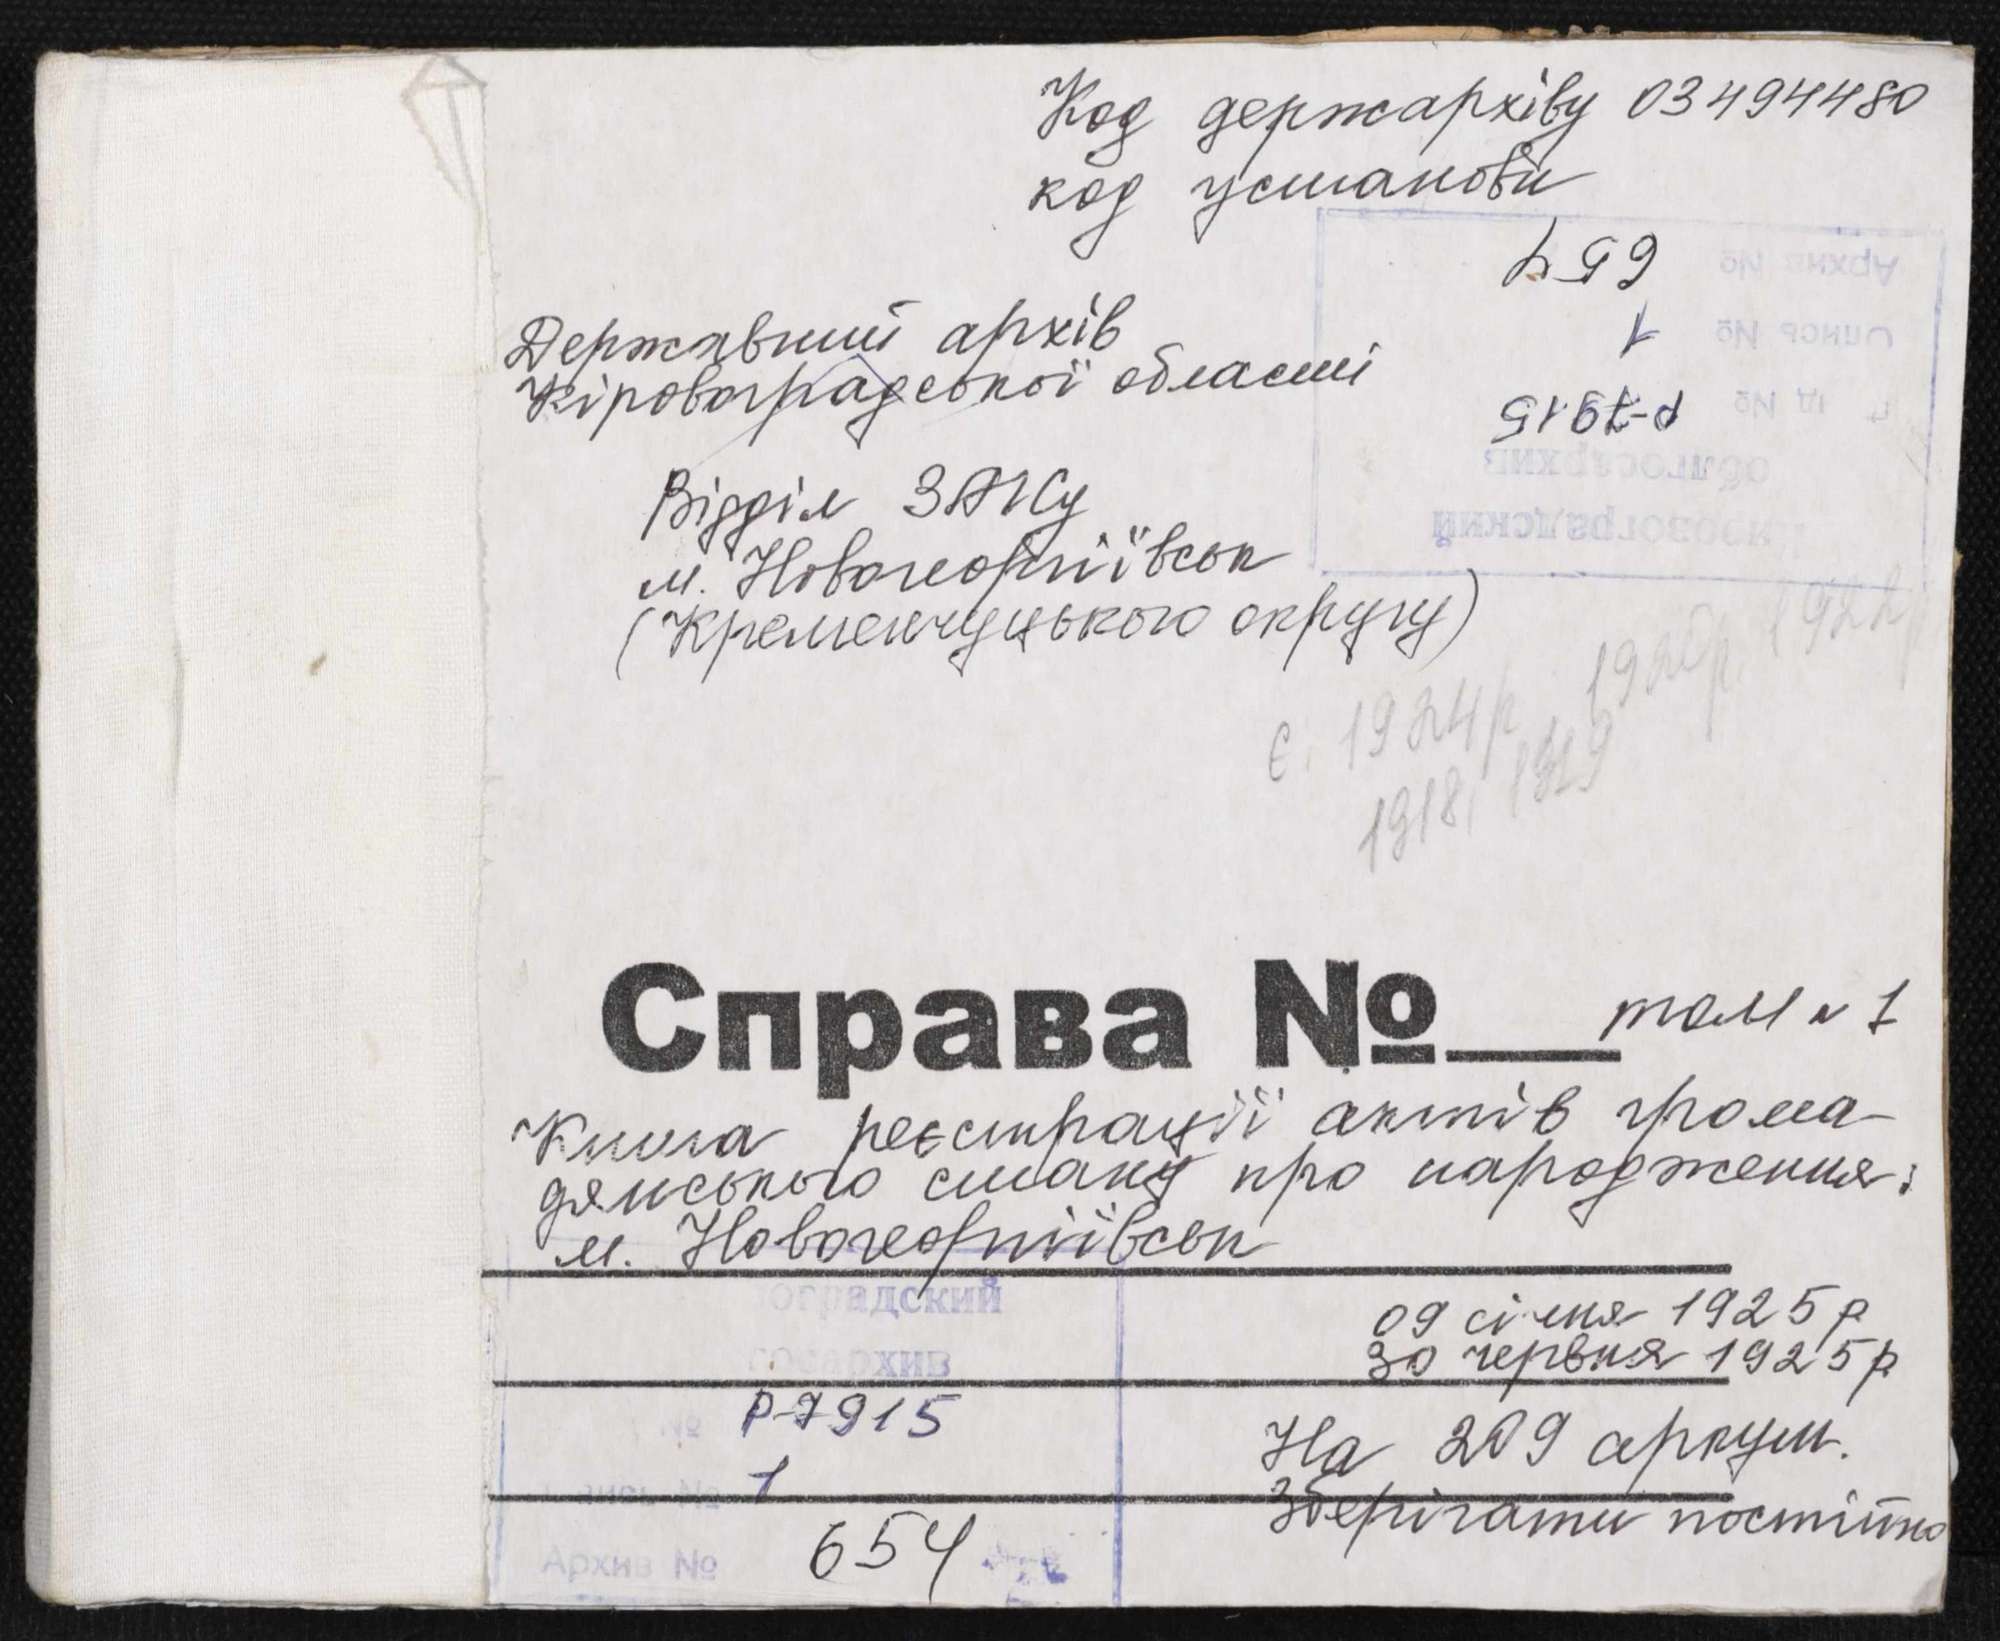 Код держархіву 03494480
код установи
Архив № 654
Опись № 1
Р-7915
облгосархив
Державний архів
Кіровоградської області
Відділ ЗАГСу
м. Новогеоргіївськ
(Кременчуцького округу)
є. 1924р 1926р. 1922р
1918, 1919
Справа №
том № 1
Книга реєстрації актів грома-
дянського стану про народження:
м. Новогеоргіївськ
09 січня 1925р
30 червня 1925р
Р-7915
На 209 аркуш.
1
Зберігати постійно
Архив № 654